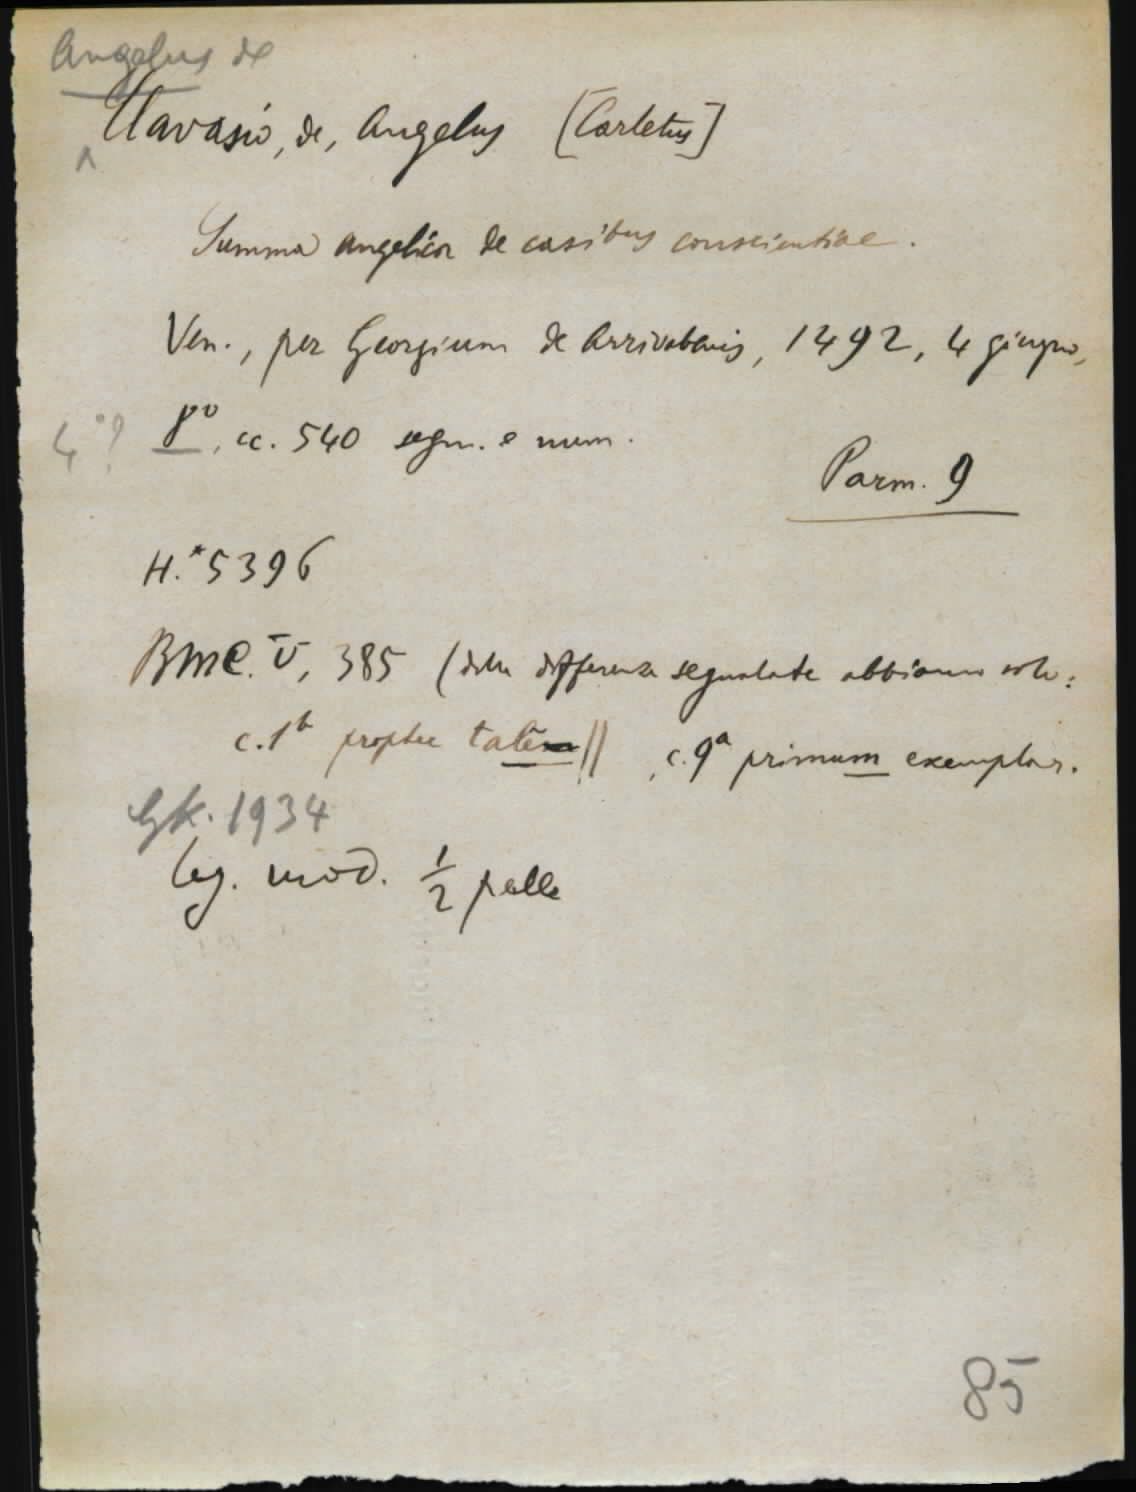 Angelus de
Clavasio, de, Angelus [Carletus]
Summa angelica de casibus conscientiae.
Ven., per Georgium de Arrivabenis, 1492, 4 giugno,
4°? 8°, cc. 540 segn. e num.
Parm. 9
H.*5396
BMC. V, 385 (delle differenze segnalate abbiamo solo:
c.1b propter talē || , c.9a primum exemplar.
GK. 1934
Leg. mod. 1/2 pelle
85